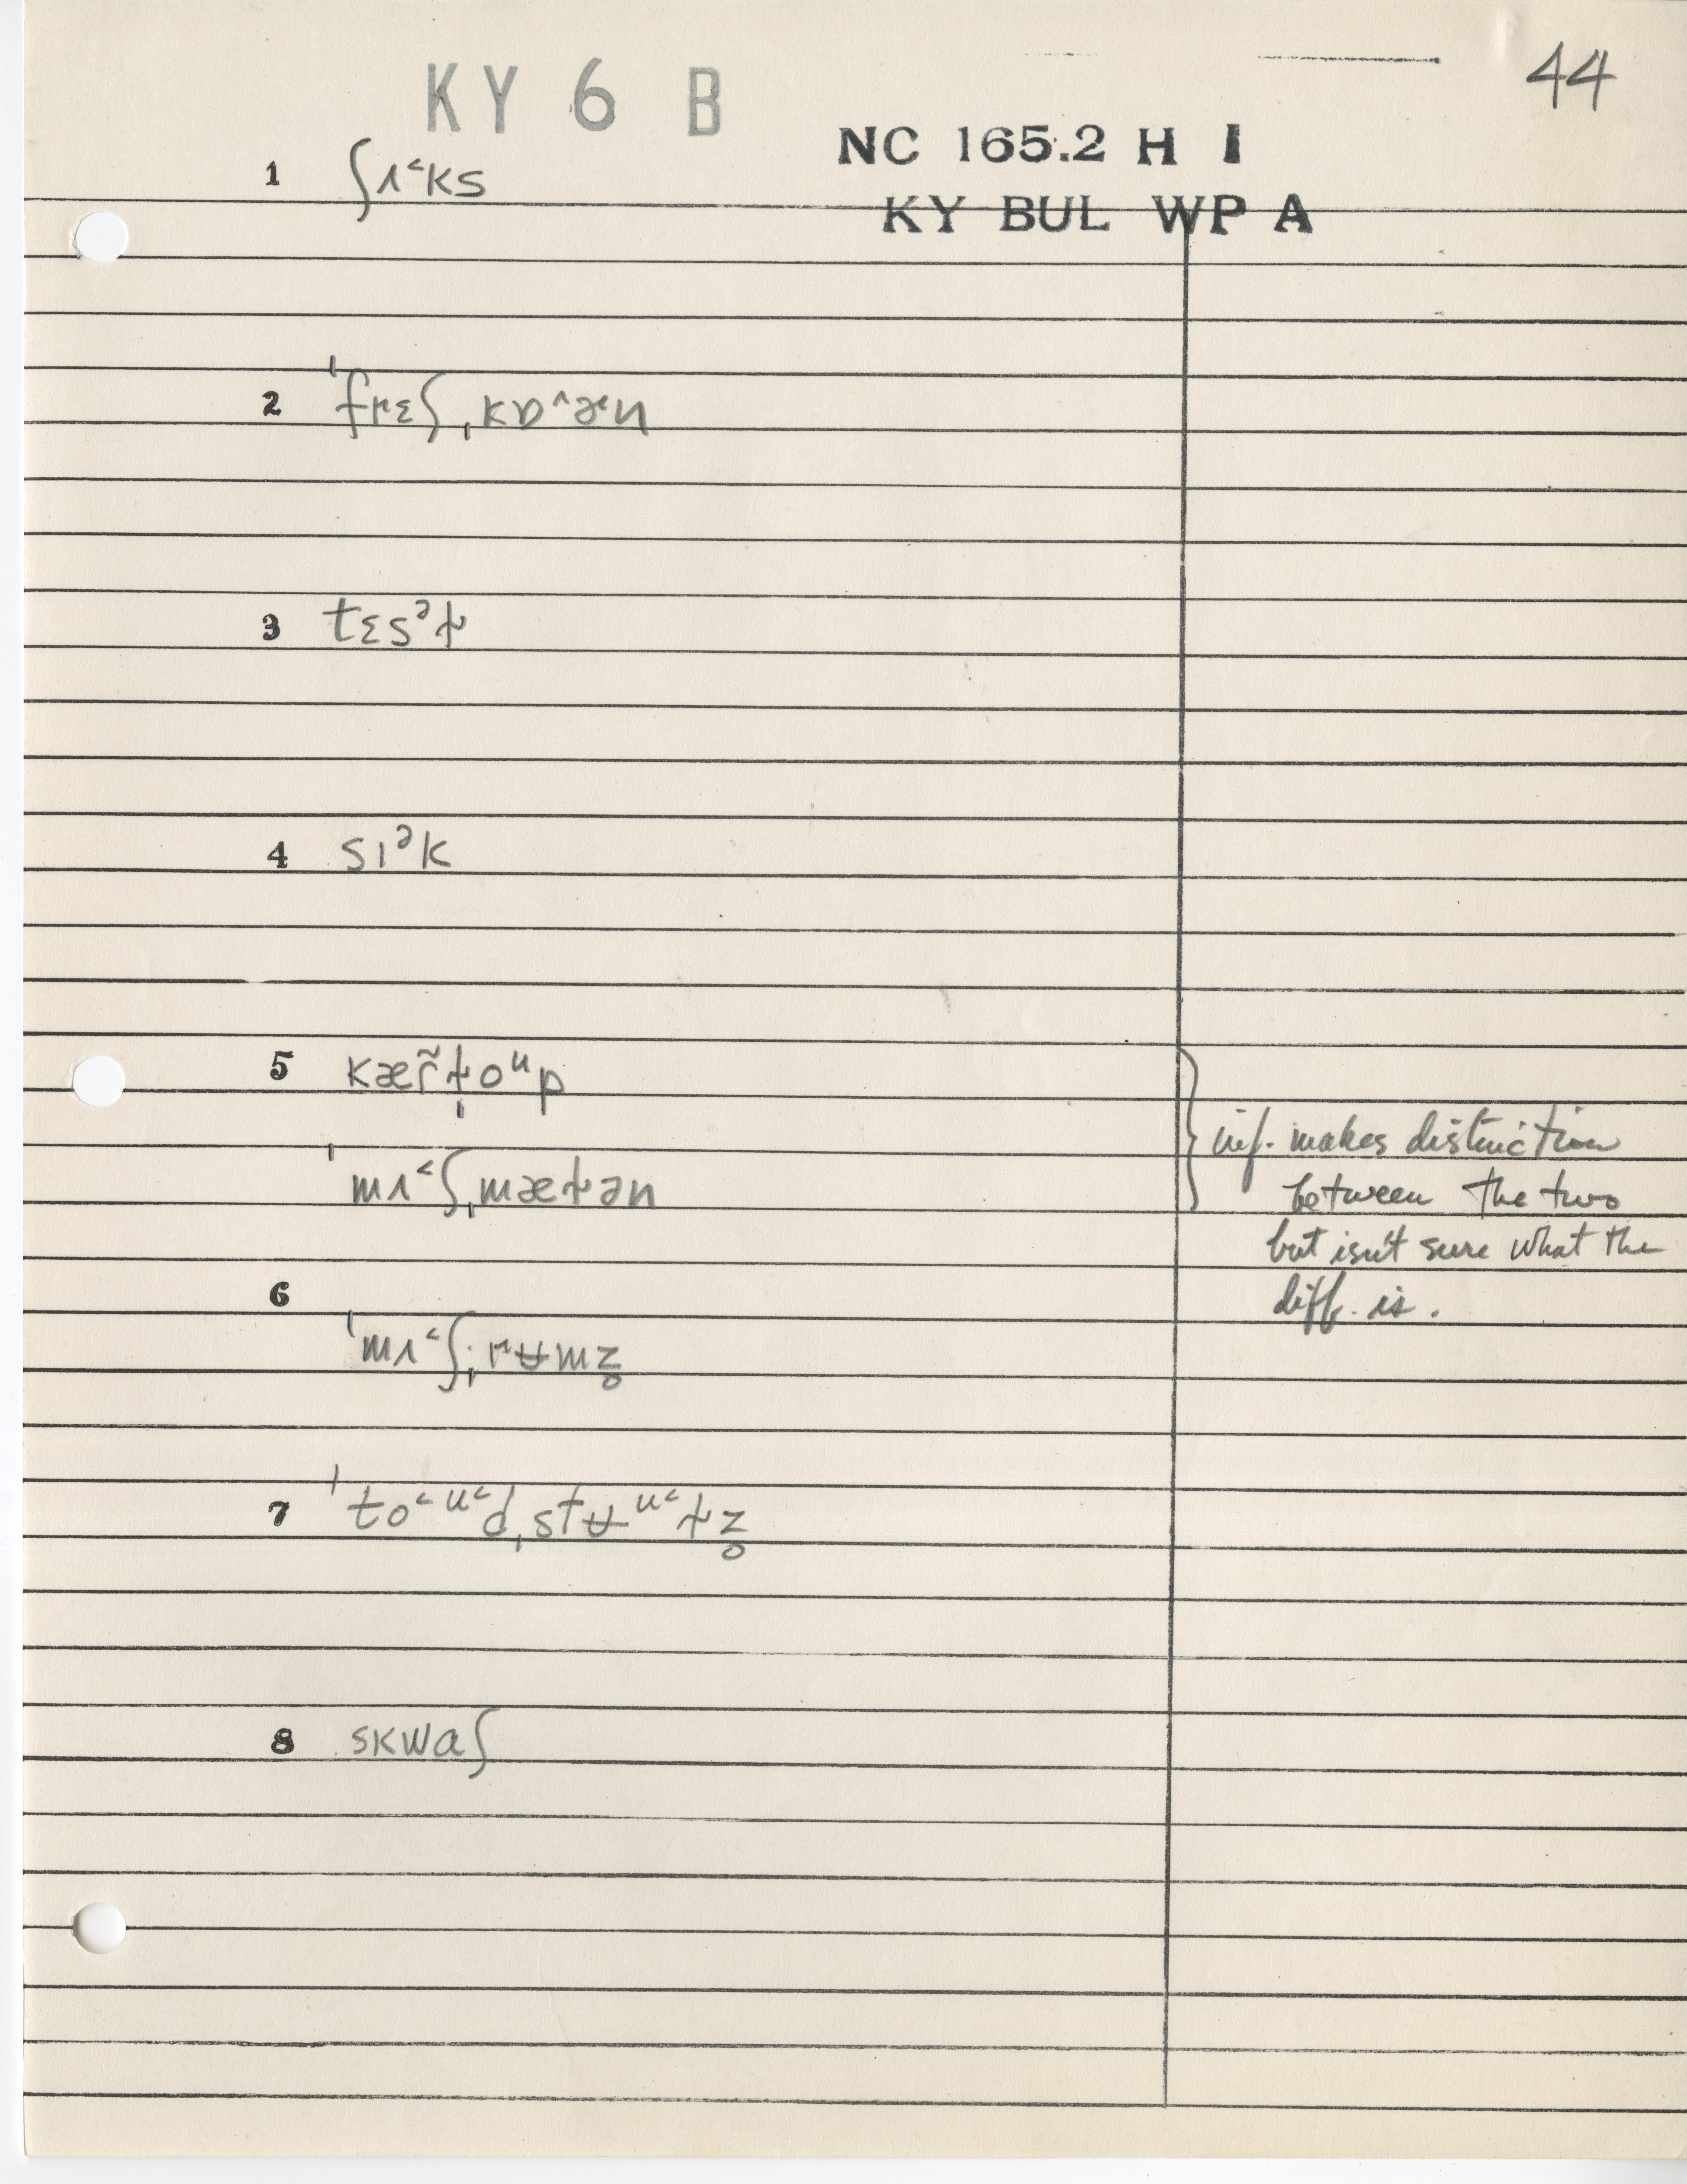 44
KY 6 B
NC 165.2 H I
KY BUL WP A
1 ʃʌ˂ks
2 ˈfrɛʃˌkɒ˄ɚn
3 tɛsᵊt̬
4 sɪᵊk
5 kæɾ̃t̬oᵘp
ˈmʌ˂ʃˌmæt̬ən
inf. makes distinction
between the two
but isn't sure what the
diff. is.
6
ˈmʌ˂ʃˌrʉmz̥
7 ˈto˂ᵘ˂dˌstʉᵘ˂t̬z̥
8 skwaʃ